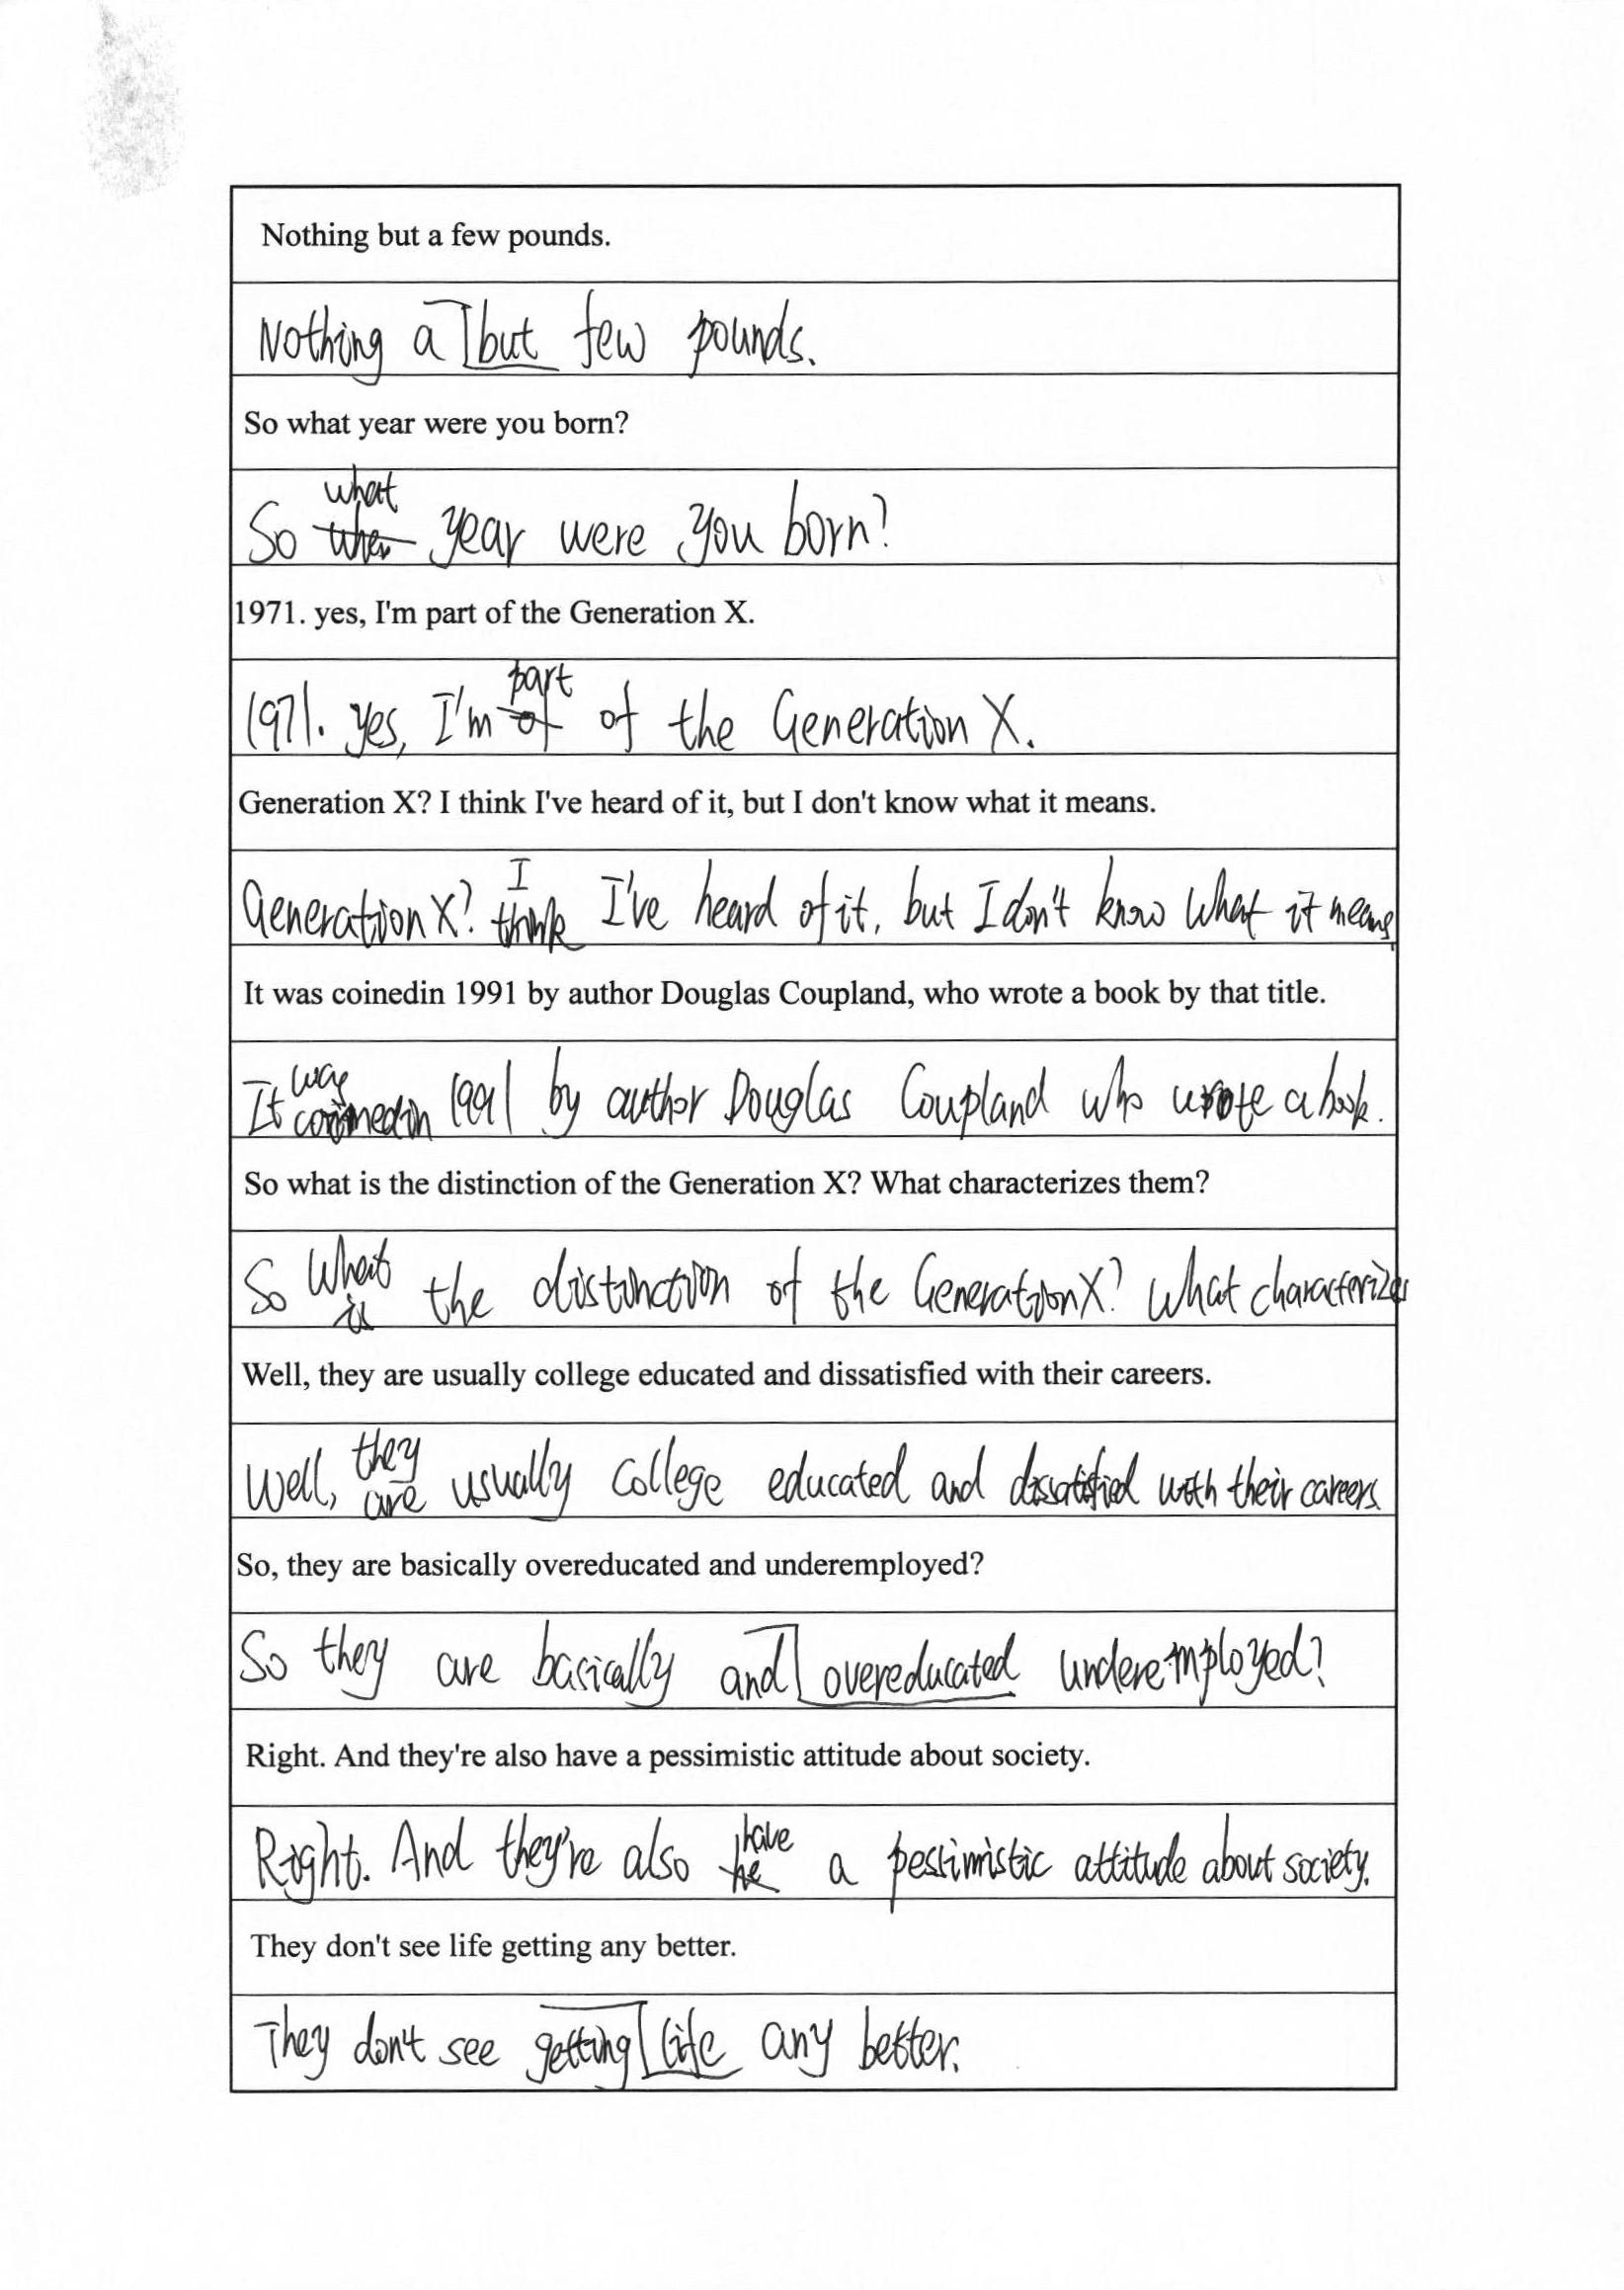 Nothing but a few pounds.
Nothing a but few pounds.
So what year were you born?
So what when year were you born?
1971. yes, I'm part of the Generation X.
1971. yes, I'm part of of the Generation X.
Generation X? I think I've heard of it, but I don't know what it means.
Generation X? I think I've heard of it, but I don't know what it means
It was coinedin 1991 by author Douglas Coupland, who wrote a book by that title.
It was coinedin 1991 by author Douglas Coupland who wrote a book.
So what is the distinction of the Generation X? What characterizes them?
So what is the distinction of the Generation X? What characterizes
Well, they are usually college educated and dissatisfied with their careers.
Well, they are usually college educated and dissatified with their careers
So, they are basically overeducated and underemployed?
So they are basically and overeducated underemployed?
Right. And they're also have a pessimistic attitude about society.
Right. And they're also have he a pessimistic attitude about society.
They don't see life getting any better.
They don't see getting life any better.